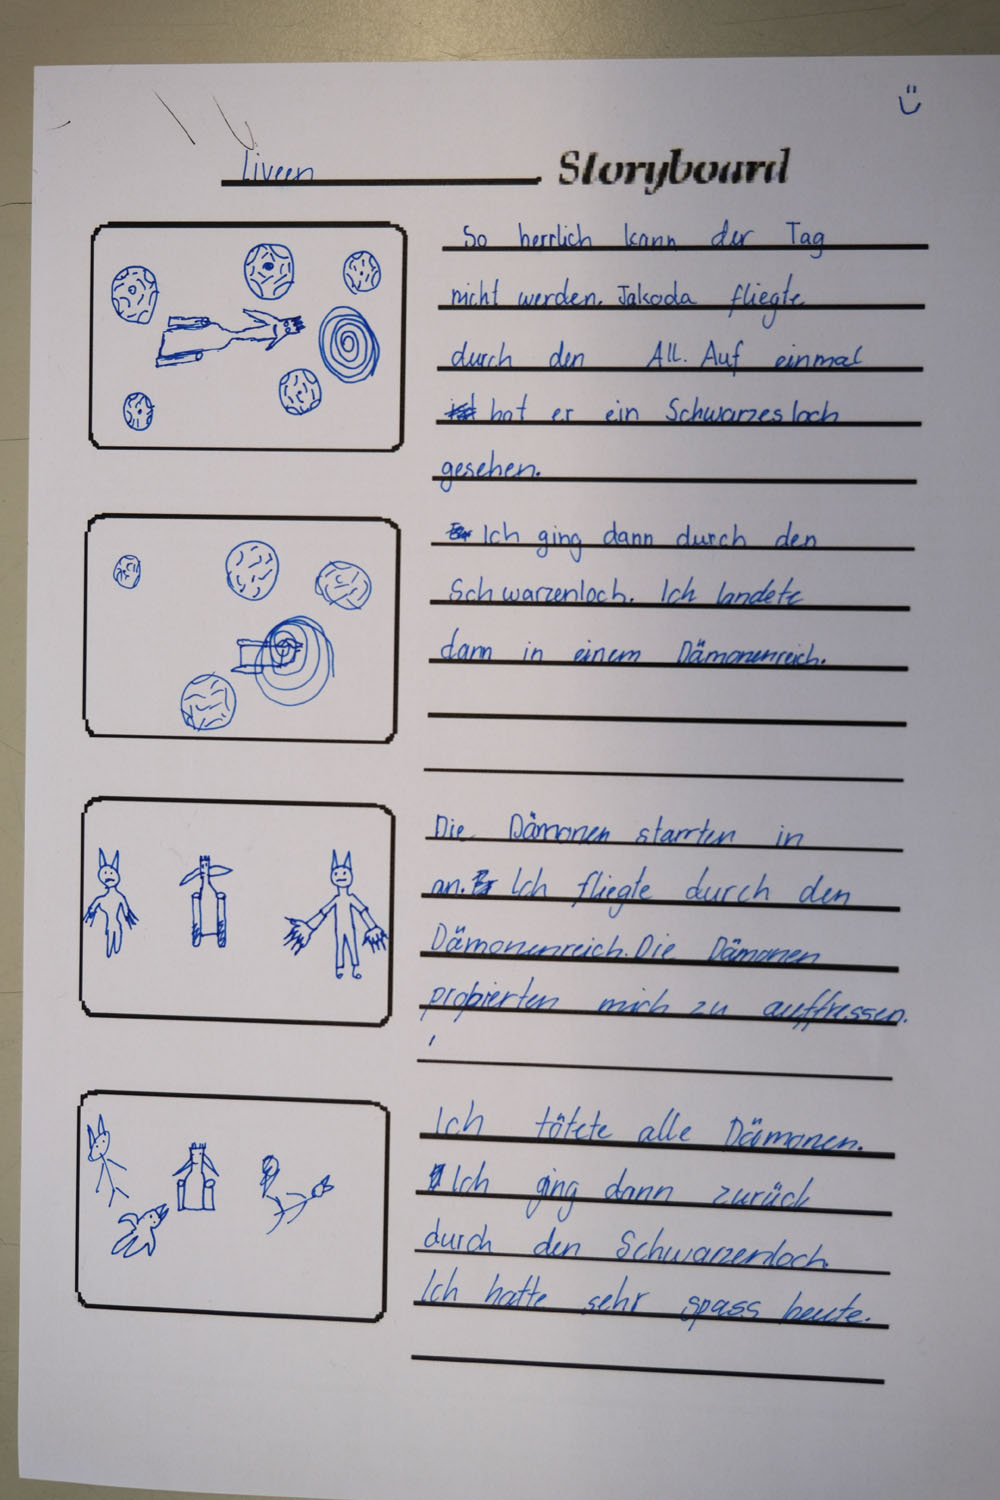 Liveen Storyboard
So herrlich kann der Tag
nicht werden. Jakoda fliegte
durch den All. Auf einmal
hat er ein Schwarzesloch
gesehen.
Ich ging dann durch den
Schwarzenloch. Ich landete
dann in einem Dämonenreich.
Die Dämonen starrten in
an. Ich fliegte durch den
Dämonenreich. Die Dämonen
probierten mich zu auffressen.
Ich tötete alle Dämonen.
Ich ging dann zurück
durch den Schwarzenloch.
Ich hatte sehr spass heute.